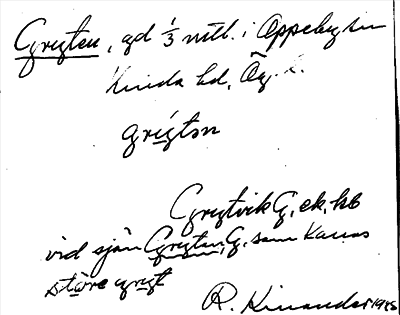 Grytten, gd 1/3 mtl. i Oppeby sn
Kinda hd, Ög. l.
grytən
Grytvik G, ek, kb
vid sjön Grytten, G, som kallas
större gryt
R. Kinander 1945